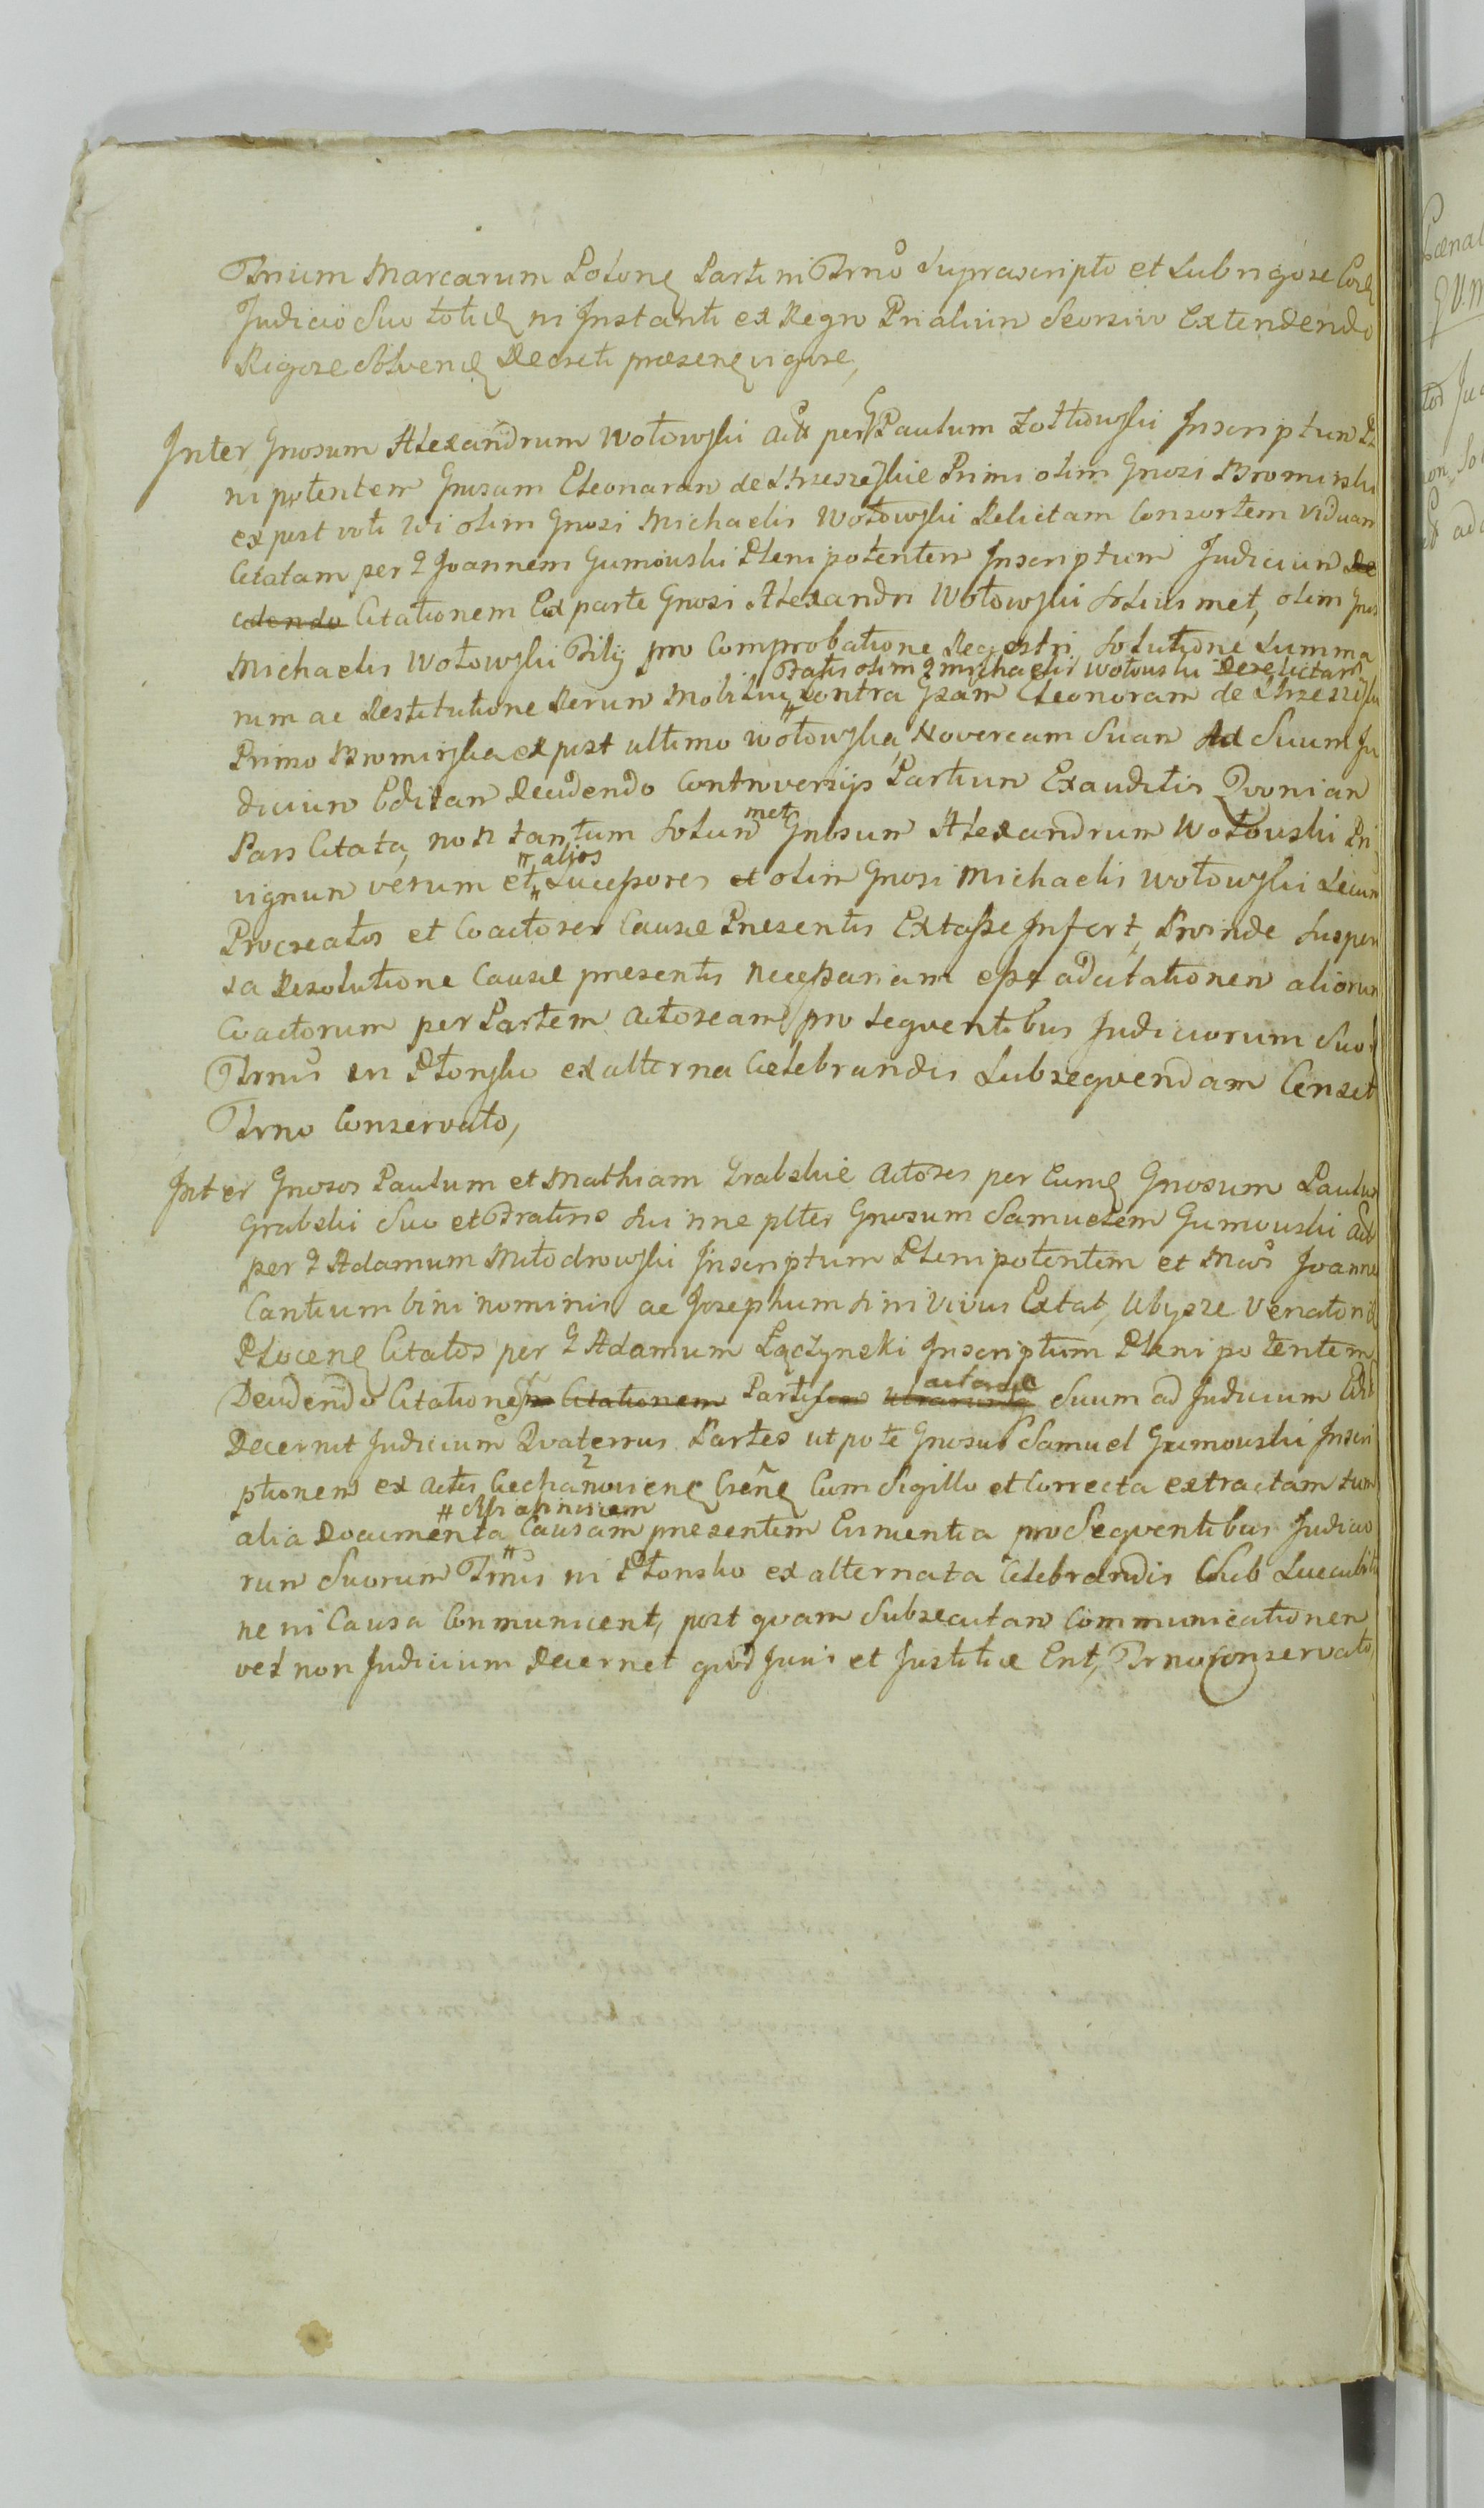 Trium Marcarum Polonę Parti in Trno suprascripto et sub rigore Corā
Judicio Suo totidę in Instanti ex Regro Prialium Seorsivo Extendendo
Rigore Solvendę Decreti præsenę vigore,
Inter Gnosum Alexandrum Wołowski Actē per G Paulum Zołtowski Inscriptum Ple
nipotentem Gnosam Eleonaram de Strzeszeskie Primi olim Gnosi Bromirski
ex post voti Vi olim Gnosi Michaelis Wołowski Relictam Consortem Viduam
Citatam per G Joannem Gumowski Plenipotentem Inscriptum Judicium De
cidendo Citationem Ex parte Gnosi Alexandri Wołowski Solius met, olim Gnosi
Michaelis Wołowski Filij pro Comprobatione Regestri, Solutione Summa
Fatis olim G Michaelis Wołowski Derelictam
rum ac Restitutione Rerum Mobilium Contra Gsam Eleonoram de Strzeszeski
Primo Bromirska ex post ultimo Wołowska, Novercam Suam Ad Suum Ju
dicium Editam Decidendo Controversijs Partium Exauditis Qvoniam
Pars Citata, non tantum Solum met Gnosum Alexandrum Wołowski Pri
vignum verum et alios Sucessores et olim Gnosi Michaelis Wołowski Secum
Procreatos et Coactores Causæ Presentis Extasse Infert, Proinde Suspen
sa Resolutione Causæ presentis necessariam esse adcitationem aliorum
Coactorum per Partem Actoream, pro Seqventibus Judiciorum Suor
Trnis in Płonsko ex alterna Celebrandis Subseqvendam Censet
Trno Conservato,
Inter Gnosos Paulum et Mathiam Grabskie Actores per Eumdę Gnosum Paulum
Grabski Suo et Fratris Sui nne plter Gnosum Samuelem Gumowski Act
per G Adamum Młodrowski Inscriptum Plenipotentem et Mcos Joannem
Cantium bini nominis ac Josephum Si in Vivis Extat, Ubysze Venatoridę
Plocenę Citatos per G Adamum Łączynski Inscriptum Plenipotentem
Decidendo Citationem Citationem Partis actoreæ utrarumqę Suum ad Judicium Edit
Decernit Judicium Qvatenus Partes ut pote Gnosus Samuel Gumowski Inscri
ptionem ex Actis Ciechanoviensę Crenę Cum Sigillo et Correcta extractam tum
alia Documenta Causam presentem Ermentia pro Seqventibus Judicio
rum Suorum Trnis in Płonsko ex alternata Celebrandis Sub Luccubitio
ne in Causa Conmunicent, post qvam Subsecutam Communicationem
vel non Judicium Decernet qvod Juris et Justitiæ Erit, Trno Conservato,